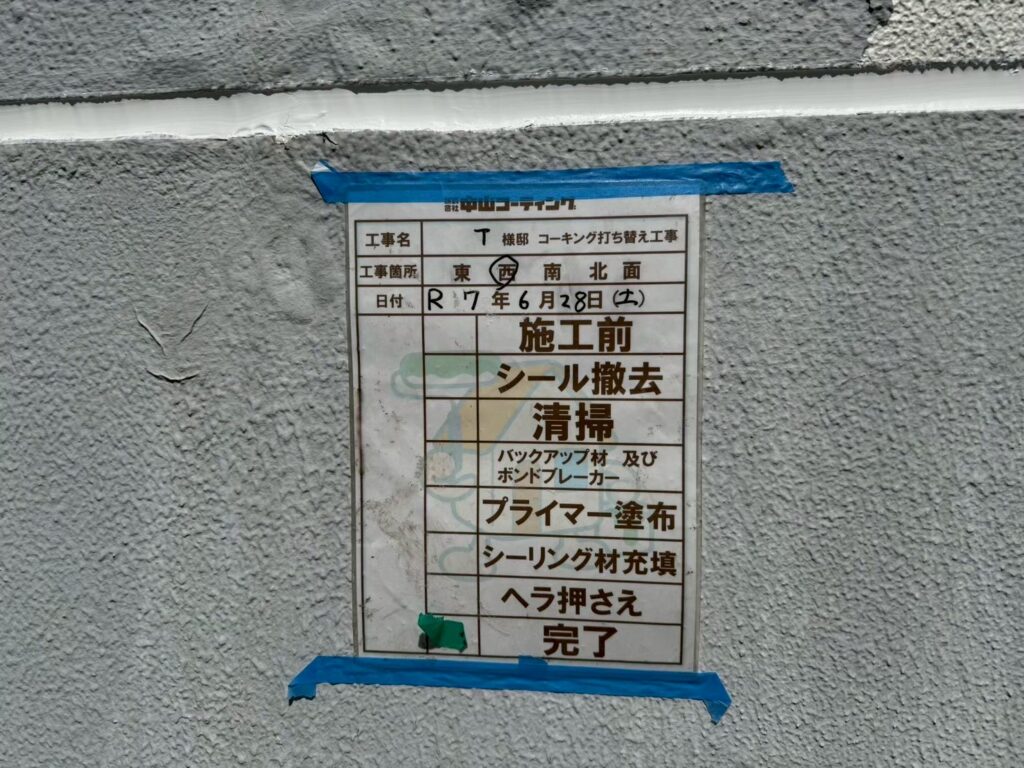 株式会社 中山コーティング
工事名 T 様邸 コーキング打ち替え工事
工事箇所 東 西 南 北 面
日付 R 7 年 6 月 28 日 (土)
施工前
シール撤去
清掃
バックアップ材 及び
ボンドブレーカー
プライマー塗布
シーリング材充填
ヘラ押さえ
完了